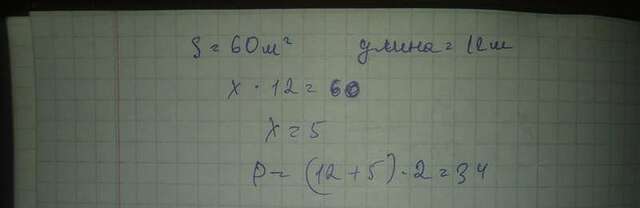 S = 60 м² длина = 12 м
x · 12 = 60
x = 5
P = (12 + 5) · 2 = 34